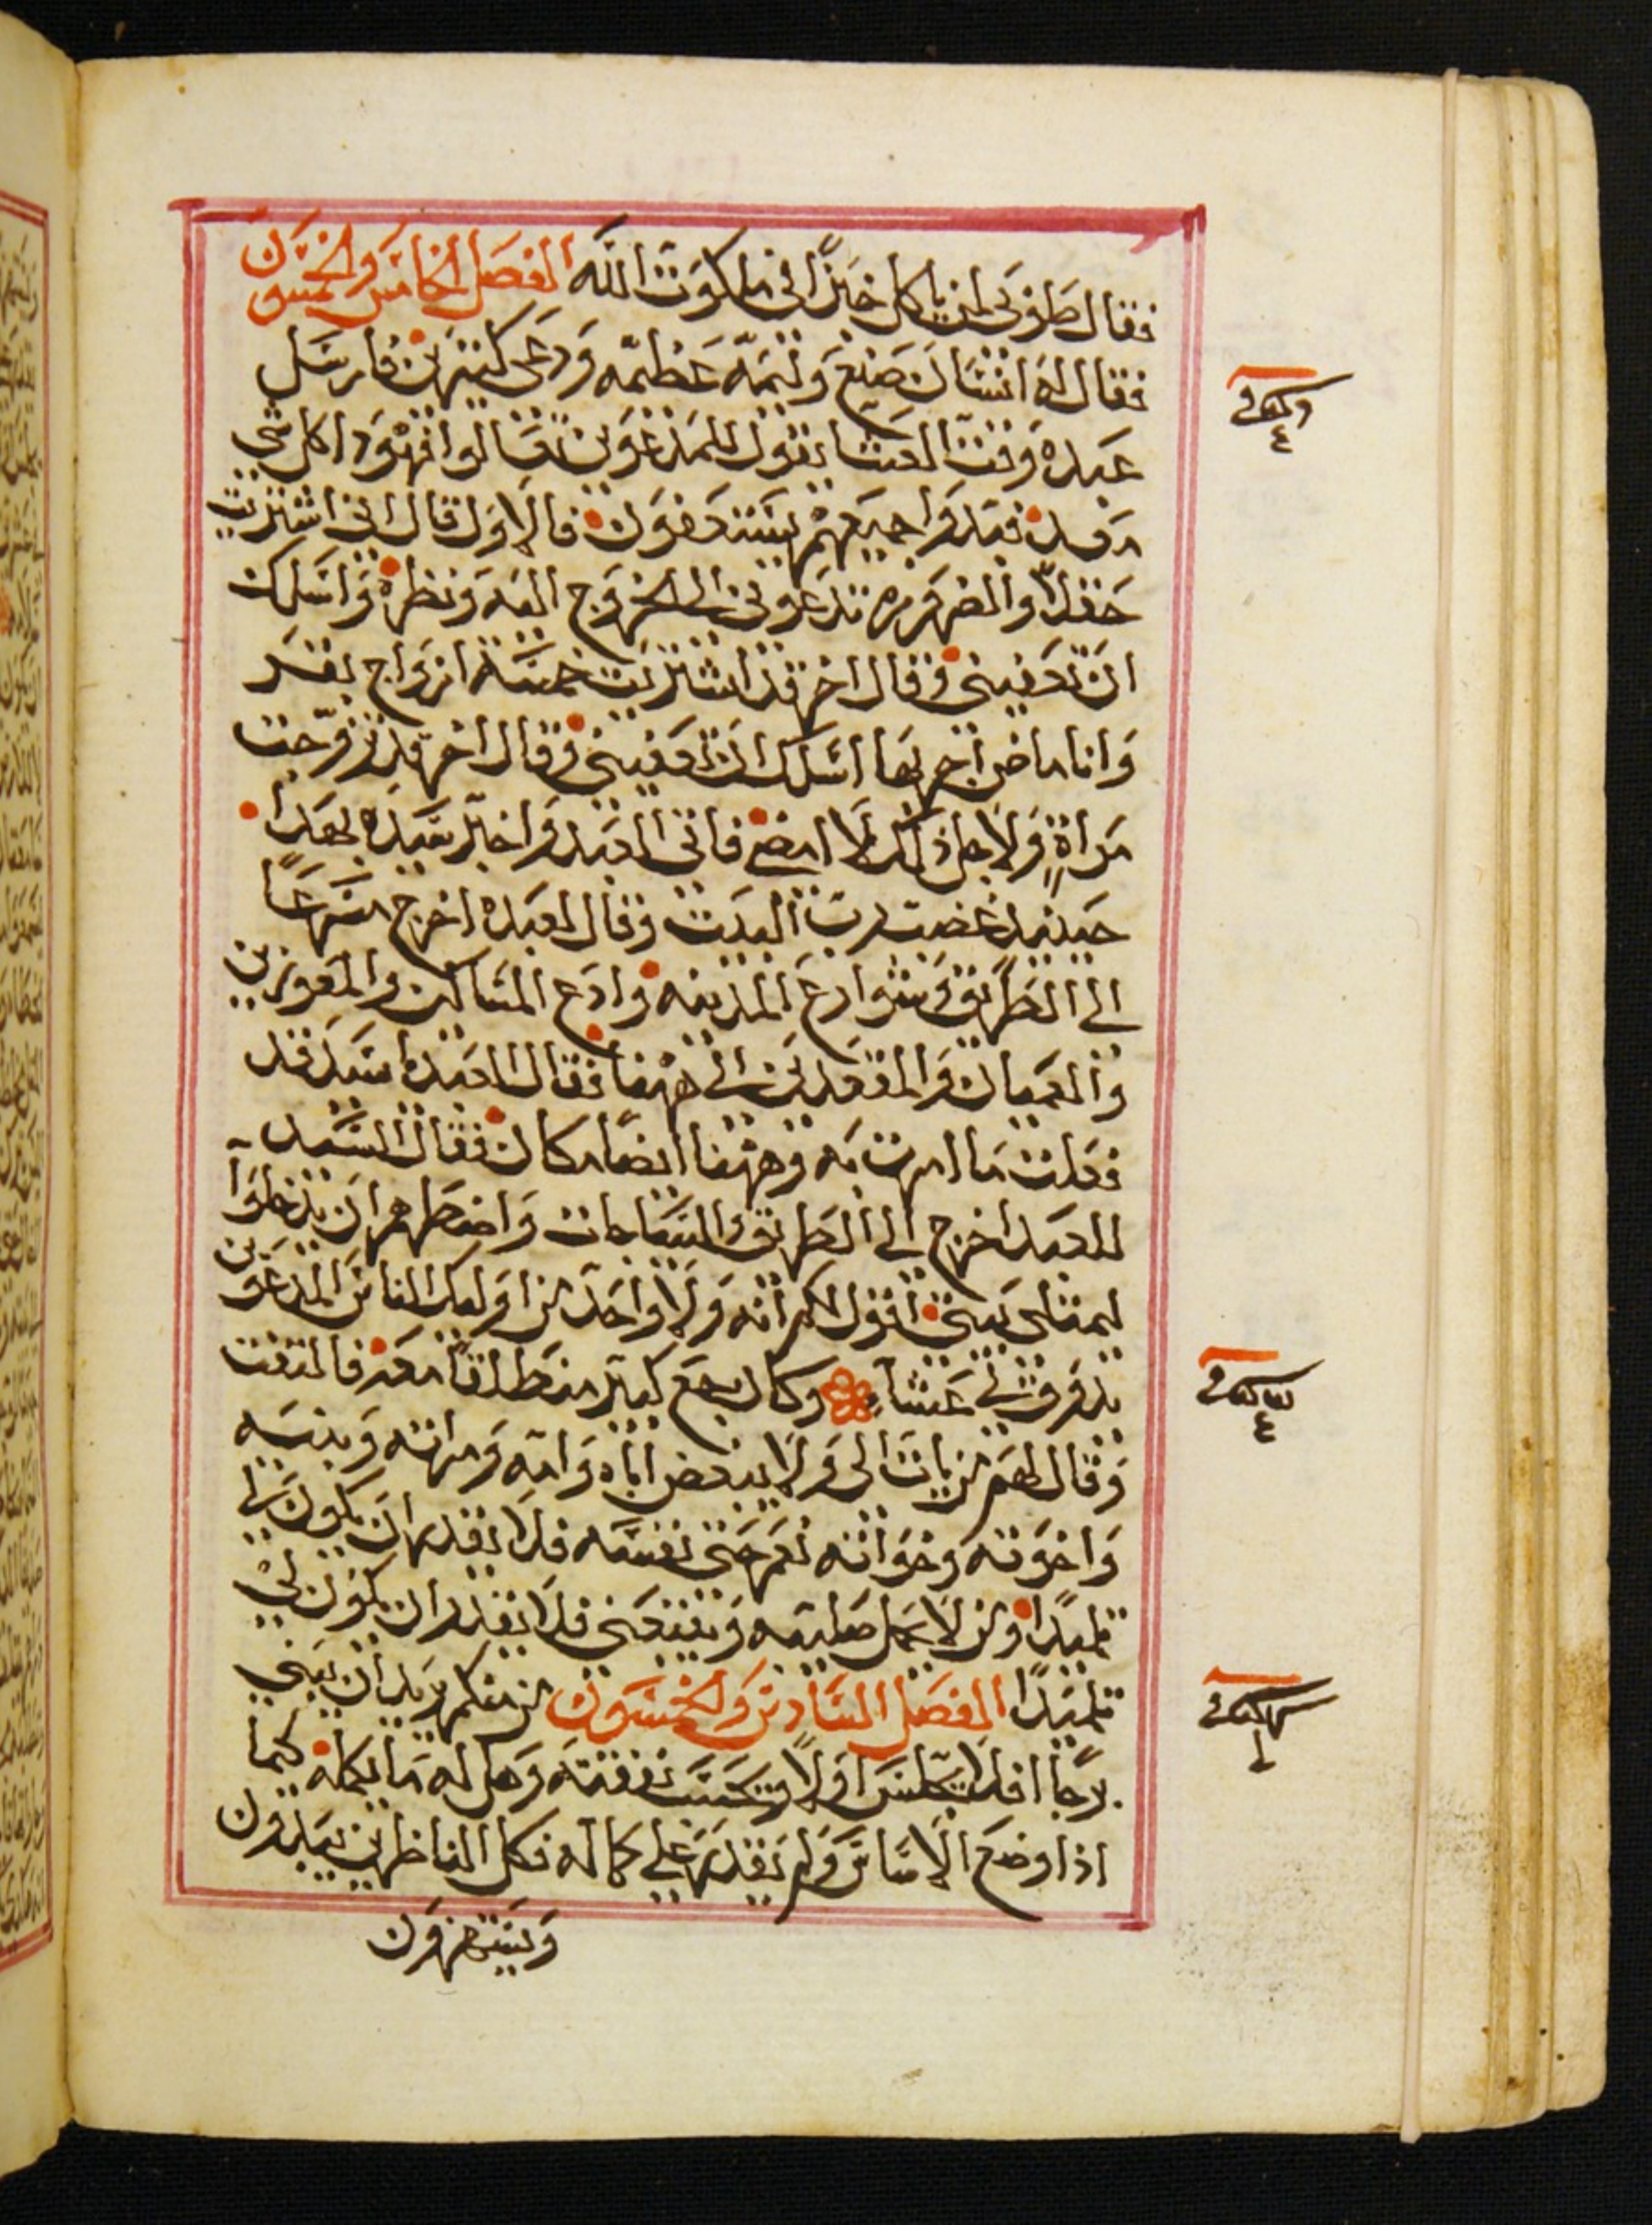 فقال طوبى لمن ياكل خبزًا فى ملكوت الله الفصل الخامس والخمسون
فقال له انسان صنع وليمه عظيمه ودعى كثيرين فارسل
عبده وقت العشا يقول للمدعوين تعالوا فهود اكل شي
معد فبدوا جميعهم يستعفون فالاول قال اني اشتريت
حقلًا والضروره تدعوني الى الخروج اليه ونظره واسلك
ان تعفيني وقال اخر قد اشتريت خمسة ازواج بقر
وانا ماض اجربها اسلك ان تعفيني وقال اخر قد تزوجت
مراة ولاجل ذلك لا امضى فاتى العبد واخبر سيده بهدا
حينيد غضب رب البيت وقال لعبده اخرج مسرعًا
الى الطريق وشوارع المدينه وادع المساكين والمعوزين
والعميان والمقعدين الى ههنا فقال العبد يا سيد قد
فعلت ما امرت به وههنا ايضًا مكان فقال السيد
للعبد اخرج الى الطريق والسياجات واضطرهم ان يدخلوا
ليمتلى بيتى اقول لكم انه ولا واحد من اوليك الناس المدعوين
يذوق لي عشآء وكان جمع كبير منطلقًا معه فالتفت
وقال لهم من يات الي ولا يبغض اباه وامه ومراته وبنيه
واخوته وخواته نعم حتى نفسه فلا يقدر ان يكون لي
تلميدًا ومن لا يحمل صليبه ويتبعنى فلا يقدر ان يكون لي
تلميدًا الفصل السادس والخمسون من منكم يريد ان يبني
برجًا افلا يجلس اولًا ويحسب نفقته وهل له ما يكمله كيما
اذا وضع الاساس ولم يقدر على كماله فكل الناظرين يبدون
ويستهزون